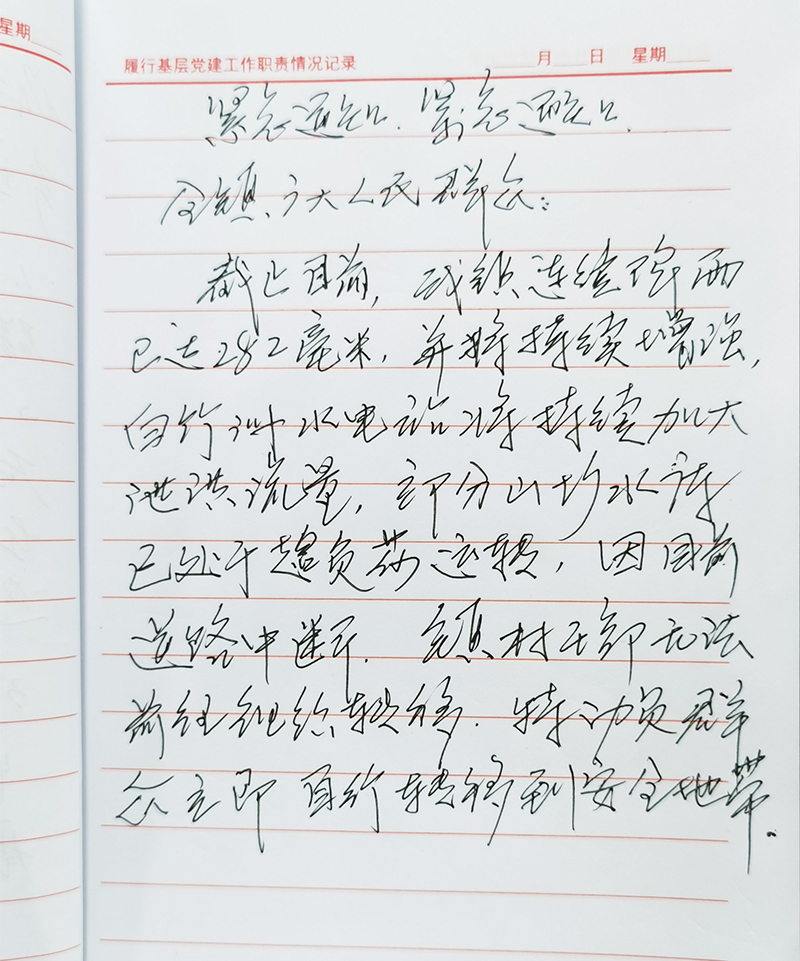 星期
履行基层党建工作职责情况记录 月 日 星期
紧急通知、紧急通知、
全镇广大人民群众：
截止目前，我镇连续降雨
已达282毫米，并将持续增强，
白竹洲水电站将持续加大
泄洪流量，部分山圳水库
已处于超负荷运转，因目前
道路中断，镇村干部无法
前往组织转移，特动员群
众立即自行转移到安全地带．